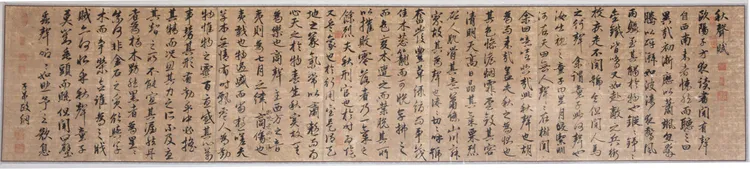 秋聲賦
歐陽子方夜讀書聞有聲
自西南來者悚然而聽之曰
異哉初淅瀝以蕭颯忽奔
騰以砰湃如波濤夜驚風
雨驟至其觸於物也鏦錚
金鐵皆鳴又如赴敵之兵銜
枚疾走不聞號令但聞人馬
之行聲余謂童子此何聲也
汝出視之童子曰星月皎潔明
河在天四無人聲聲在樹間
余曰噫嘻悲哉此秋聲也胡
為乎來哉蓋夫秋之為狀也
其色慘淡煙霏雲斂其容
清明天高日晶其氣慄冽
砭人肌骨其意蕭條山川寂
寥故其為聲也淒切呼號
奮發豐草綠縟而爭茂
佳木葱蘢而可悅草拂之
而色變木遭之而葉脫其所
以摧敗零落者乃一氣之
餘烈夫秋刑官也於時為陰
又兵象也於行為金是謂天
地之義氣常以肅殺而為
心天之於物春生秋實故其在
樂也商聲主西方之音
夷則為七月之律商傷也
夷戮也物過盛而當殺嗟夫
草木無情有時飄零人為動
物惟物之靈百憂感其心萬
事勞其形有動乎中必搖
其精而況思其力之所不及憂
其智之所不能宜其渥然丹
者為槁木黟然黑者為星星
奈何非金石之質欲與草
木而爭榮念誰為之戕
賊亦何恨乎秋聲童子
莫對垂頭而睡但聞四壁
蟲聲唧唧如助予之歎息